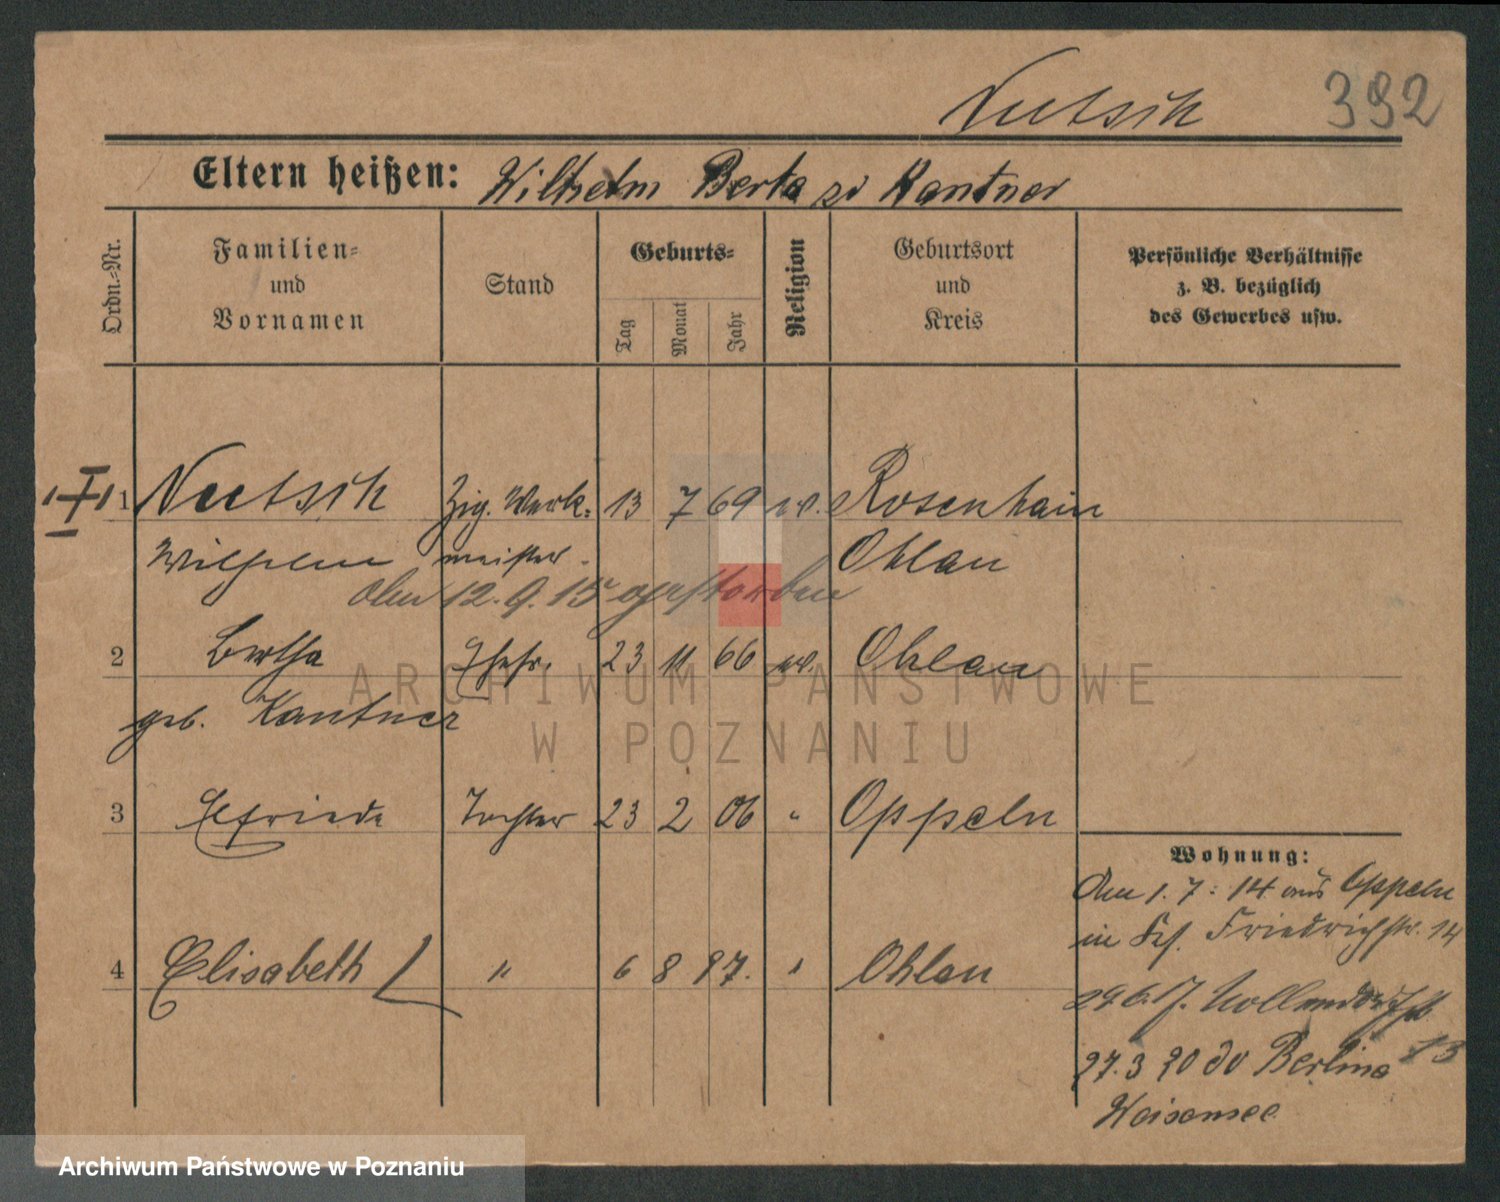 Neetsik
392
Eltern heißen: Wilhelm Berta zd Kantner
Ordn.-Nr.
Familien-
und
Vornamen
Stand
Geburts-
Tag
Monat
Jahr
Religion
Geburtsort
und
Kreis
Persönliche Verhältnisse
z. B. bezüglich
des Gewerbes usw.
1 Zig. Werk- 13 7 69 Rosenhain
Wilhelm meister Ohlau
Am 12. 9. 15 gestorben
2 Bertha Ehefr. 23 11 66 Ohlau
geb. Kantner
3 Elfriede Tochter 23 2 06 " Oppeln
Wohnung:
Am 1. 7. 14 aus Oppeln
in Friedrichstr. 14
4 Elisabeth " 6 8 97. " Ohlau
29.6.17.
13
27.3 20 do Berlina
Weisensee
ARCHIWUM PAŃSTWOWE
W POZNANIU
Archiwum Państwowe w Poznaniu